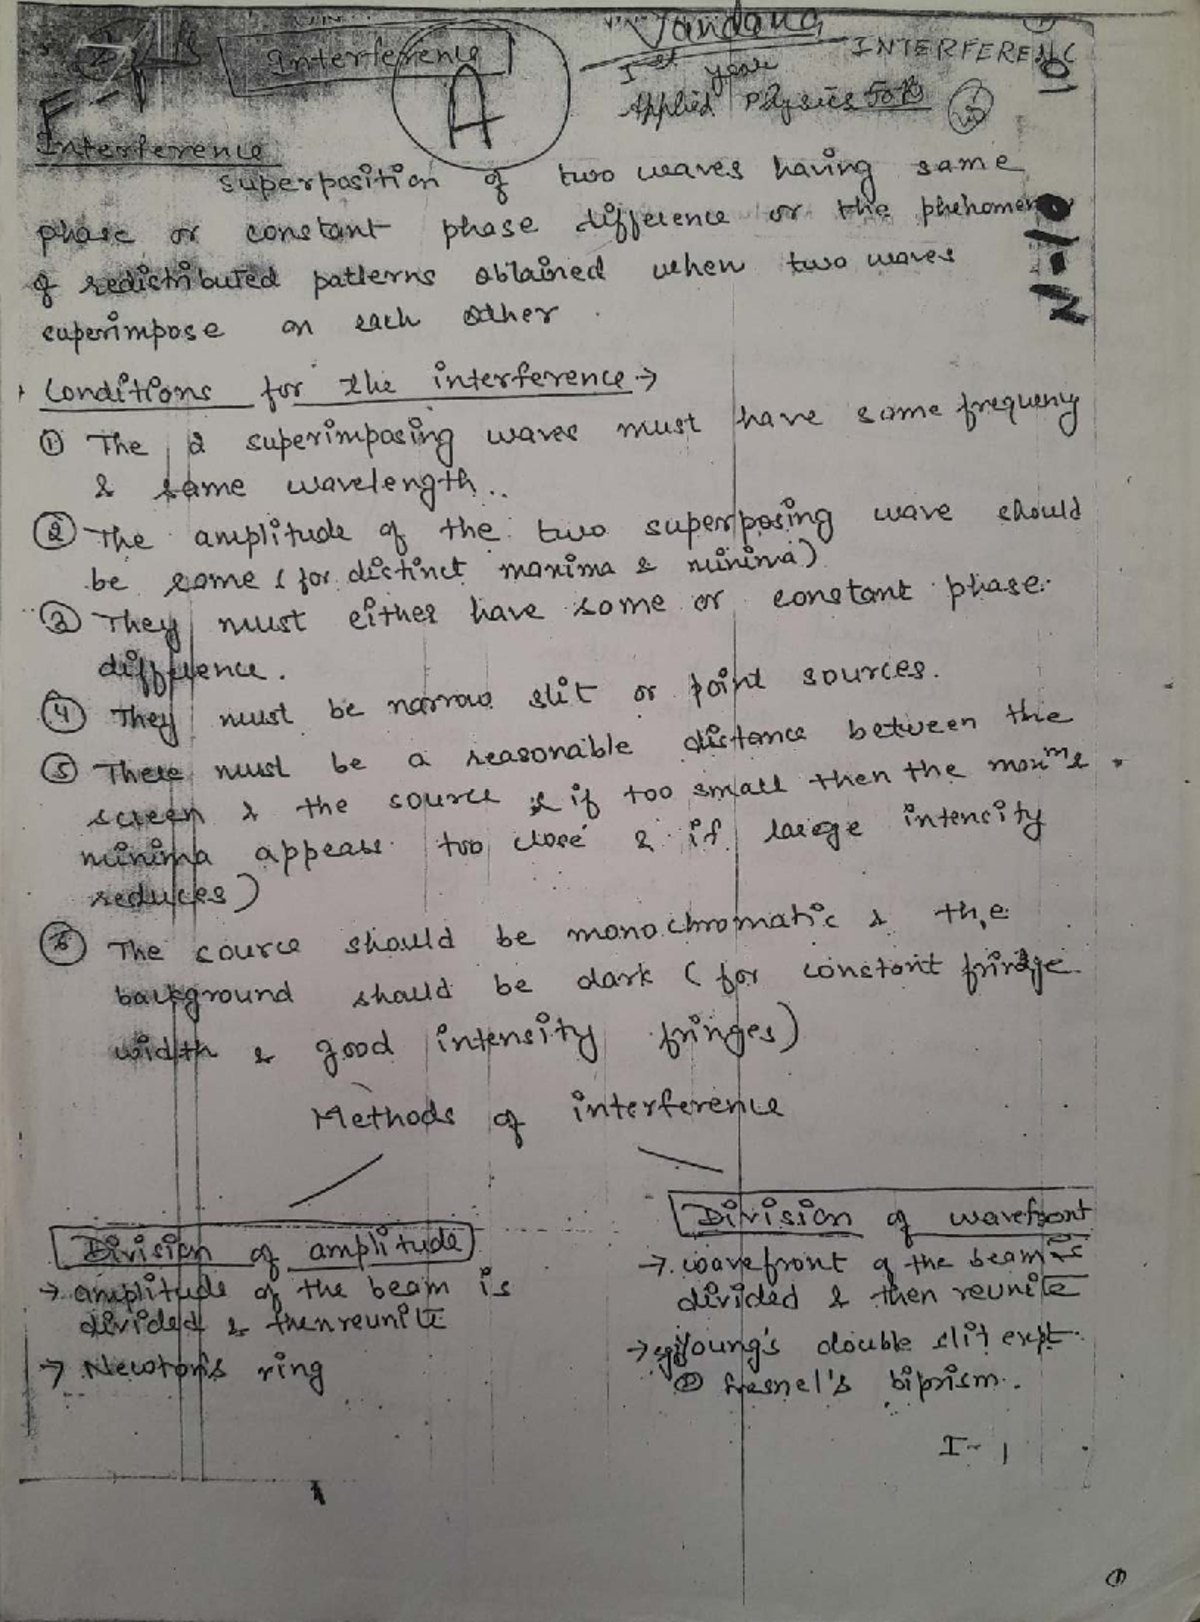 Interference
Vandana
INTERFERENC
Ist year
Applied Physics
A
Interference
superposition of two waves having same
phase or constant phase difference or the phenomen
of redistributed patterns obtained when two waves
superimpose on each other.
Conditions for the interference →
① The 2 superimposing waves must have same frequency
& same wavelength..
② The amplitude of the two superposing wave should
be same (for distinct maxima & minima)
③ They must either have same or constant phase
difference.
④ They must be narrow slit or point sources.
⑤ There must be a reasonable distance between the
screen & the source & if too small then the maxms
minima appears too close & if large intensity
reduces)
⑥ The source should be monochromatic & the
background should be dark (for constant fringe
width & good intensity fringes)
Methods of interference
Division of amplitude
→ amplitude of the beam is
divided & then reunite
→ Newton's ring
Division of wavefront
→ wavefront of the beam is
divided & then reunite
→ eg Young's double slit expt.
② fresnel's biprism.
I-1
①